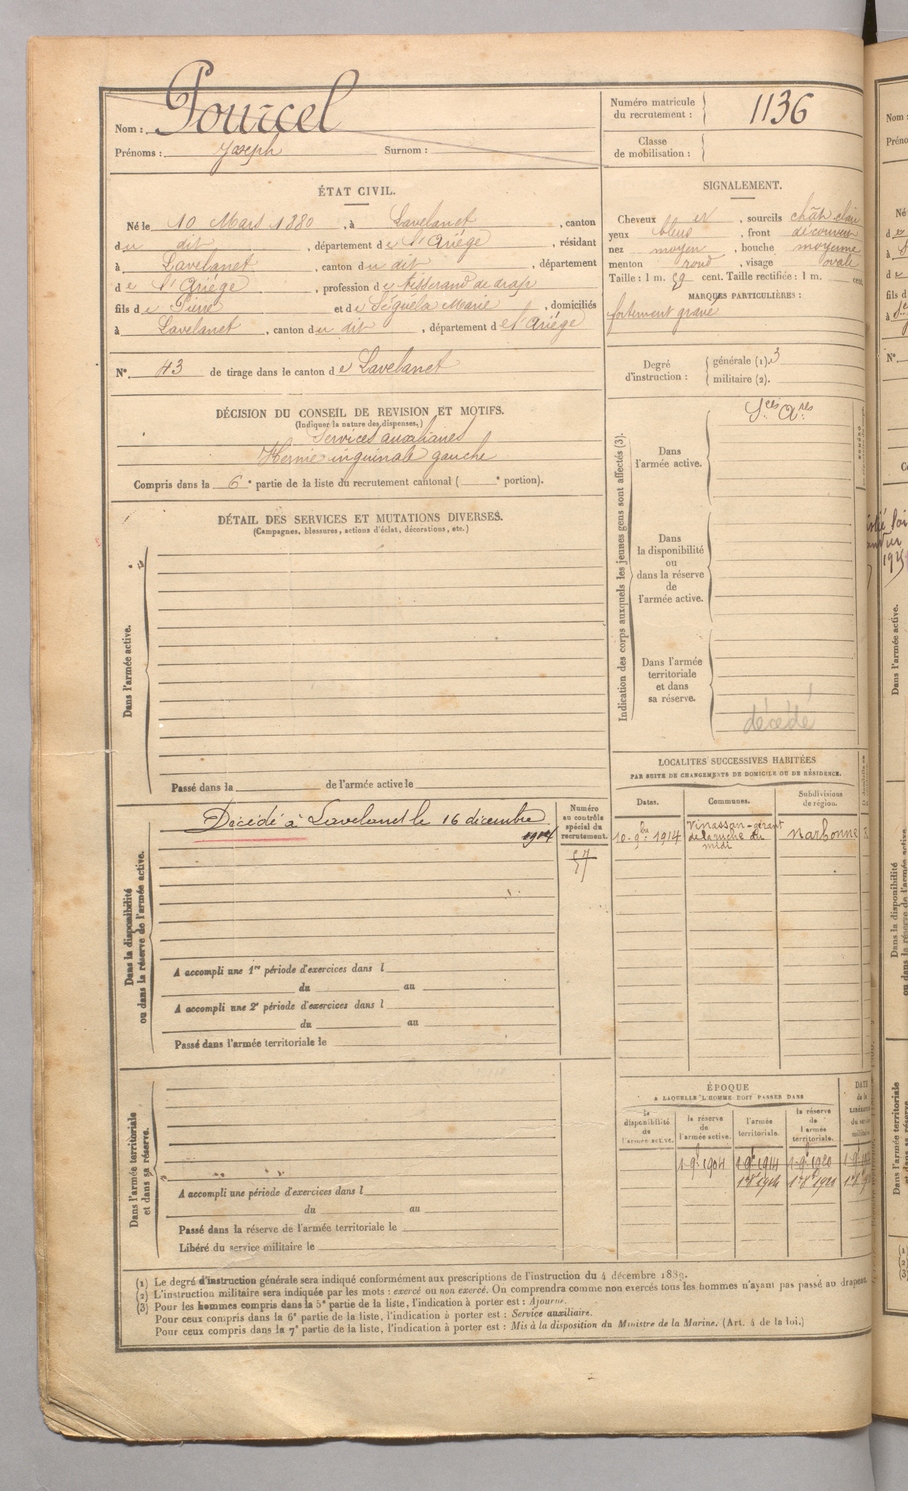 Nom : Pourcel
Prénoms : Joseph Surnom :
Numéro matricule
du recrutement : 1136
Classe
de mobilisation :
ÉTAT CIVIL.
Né le 10 Mars 1880, à Lavelanet, canton
du dit, département de l'Ariége, résidant
à Lavelanet, canton du dit, département
de l'Ariége, profession de tisserand de drap
fils de Pierre et de Séguéla Marie, domiciliés
à Lavelanet, canton du dit, département de l'Ariége
N° 43 de tirage dans le canton de Lavelanet
SIGNALEMENT.
Cheveux et, sourcils chât clair
yeux bleus, front découvert
nez moyen, bouche moyenne
menton rond, visage ovale
Taille : 1 m. 59 cent. Taille rectifiée : 1 m. cent.
MARQUES PARTICULIÈRES :
fortement gravé
Degré
d'instruction :
générale (1). 3
militaire (2).
DÉCISION DU CONSEIL DE REVISION ET MOTIFS.
(Indiquer la nature des dispenses.)
Services auxiliaires
Hernie inguinale gauche
Compris dans la 6e partie de la liste du recrutement cantonal ( e portion).
DÉTAIL DES SERVICES ET MUTATIONS DIVERSES.
(Campagnes, blessures, actions d'éclat, décorations, etc.)
Dans l'armée active.
Passé dans la de l'armée active le
Indication des corps auxquels les jeunes gens sont affectés (3).
Dans
l'armée active.
Sces Ares
Dans
la disponibilité
ou
dans la réserve
de
l'armée active.
Dans l'armée
territoriale
et dans
sa réserve.
décédé
Dans la disponibilité
ou dans la réserve de l'armée active.
Décédé à Lavelanet le 16 décembre
1914
Numéro
au contrôle
spécial du
recrutement.
57
A accompli une 1re période d'exercices dans l
du au
A accompli une 2e période d'exercices dans l
du au
Passé dans l'armée territoriale le
LOCALITÉS SUCCESSIVES HABITÉES
PAR SUITE DE CHANGEMENTS DE DOMICILE OU DE RÉSIDENCE.
Dates.
Communes.
Subdivisions
de région.
10-9bre 1914
Vinassan-gérant
de la ruche du
midi
Narbonne
Dans l'armée territoriale
et dans sa réserve.
A accompli une période d'exercices dans l
du au
Passé dans la réserve de l'armée territoriale le
Libéré du service militaire le
ÉPOQUE
A LAQUELLE L'HOMME DOIT PASSER DANS
la
disponibilité
de
l'armée active.
la réserve
de
l'armée active.
l'armée
territoriale.
la réserve
de
l'armée
territoriale.
1-9e 1904
1-9e 1914
1-9e 1920
(1) Le degré d'instruction générale sera indiqué conformément aux prescriptions de l'instruction du 4 décembre 1889.
(2) L'instruction militaire sera indiquée par les mots : exercé ou non exercé. On comprendra comme non exercés tous les hommes n'ayant pas passé au drapeau.
(3) Pour les hommes compris dans la 5e partie de la liste, l'indication à porter est : Ajourné.
Pour ceux compris dans la 6e partie de la liste, l'indication à porter est : Service auxiliaire.
Pour ceux compris dans la 7e partie de la liste, l'indication à porter est : Mis à la disposition du Ministre de la Marine. (Art. 4 de la loi.)